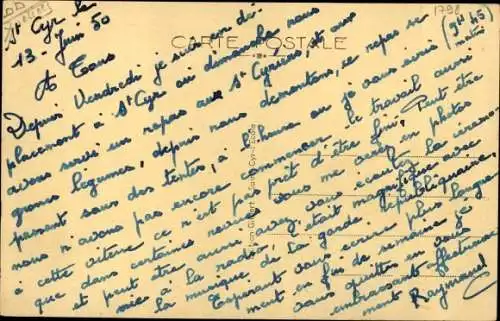 1798
St Cyr le
13 Juin 50
(9H45
matin)
CARTE POSTALE
A Tous
Depuis Vendredi je suis en dé-
placement à St Cyr où dimanche nous
avons servi un repas aux St Cyriens, et aux
grosses légumes, depuis nous démontons, ce repas se
passant sous des tentes, à l'heure où je vous écris
nous n'avons pas encore commencer le travail aussi
à cette vitesse ce n'est pas prêt d'être fini. Peut être
que dans certaines revues vous me verrez en photos
et peut être aussi avez vous écoutez la cérémo
nie à la radio, c'était magnifique avec
la musique de la garde républicaine
Espérant vous écrire plus longue
ment en fin de semaine je
vous quittes en vous
embrassant affectueuse
ment Raymond